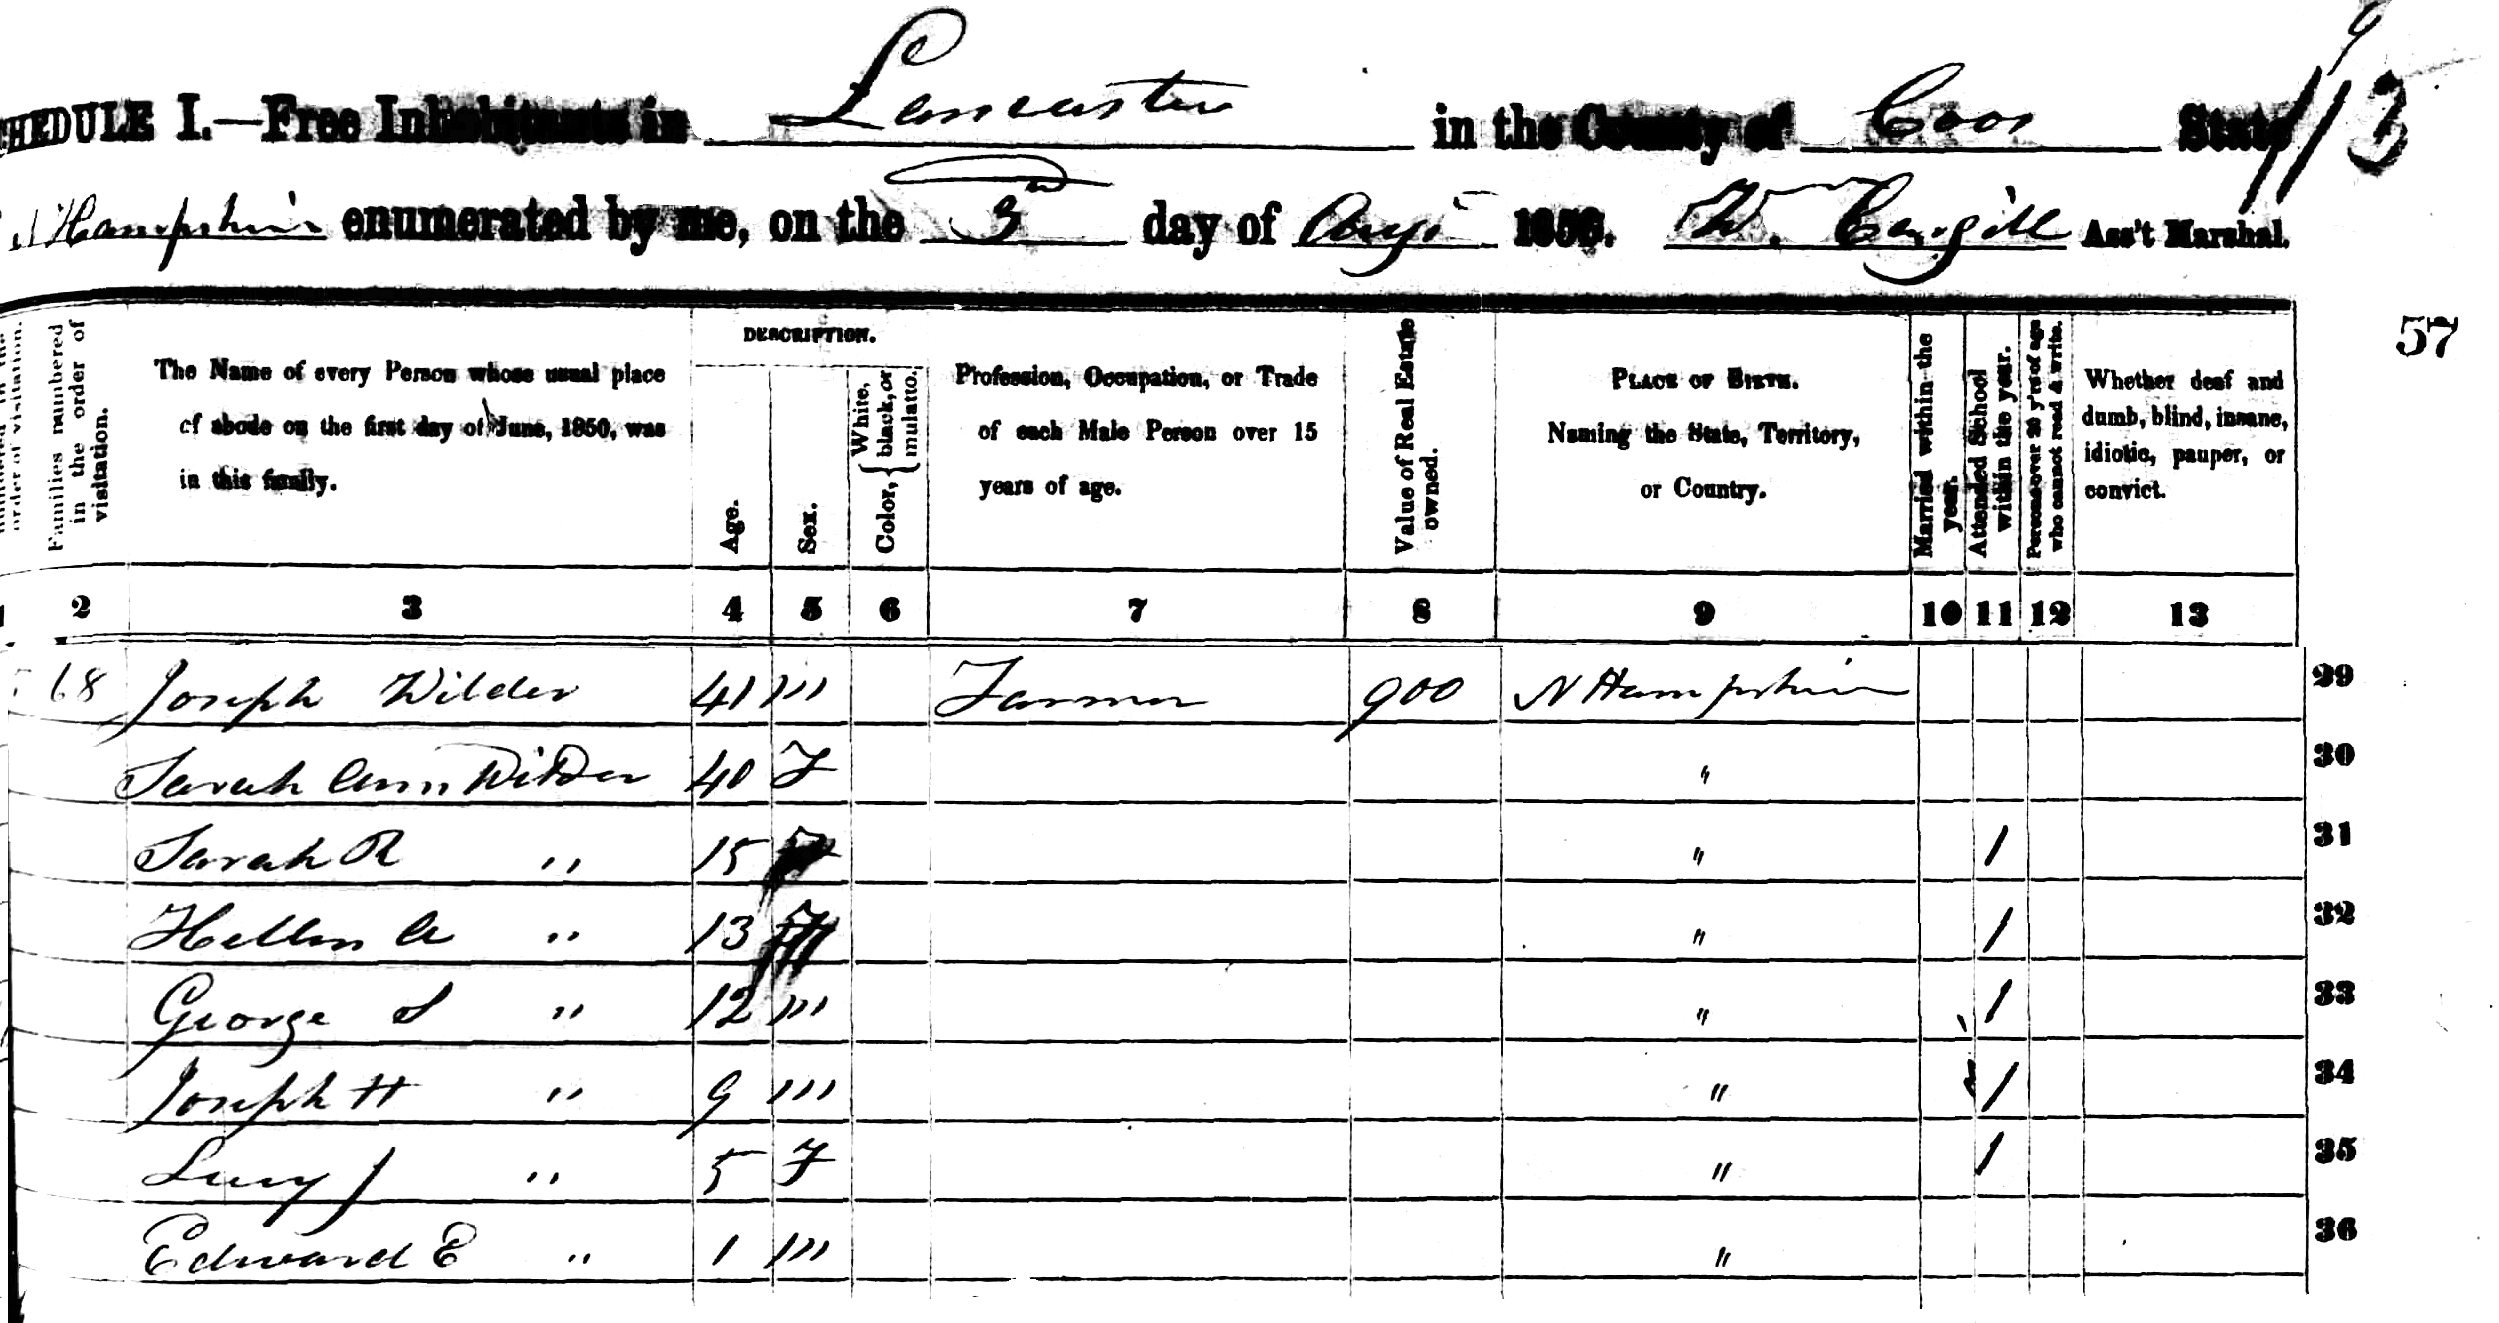 SCHEDULE I.—Free Inhabitants in Lancaster in the County of Coos State
N Hampshire enumerated by me, on the 3rd day of Augt 1850. W. Cargill Ass't Marshal.
113
57
Families numbered in the order of visitation.
The Name of every Person whose usual place of abode on the first day of June, 1850, was in this family.
DESCRIPTION.
Age.
Sex.
Color, { White, black, or mulatto.
Profession, Occupation, or Trade of each Male Person over 15 years of age.
Value of Real Estate owned.
PLACE OF BIRTH. Naming the State, Territory, or Country.
Married within the year.
Attended School within the year.
Persons over 20 y'rs of age who cannot read & write.
Whether deaf and dumb, blind, insane, idiotic, pauper, or convict.
2 3 4 5 6 7 8 9 10 11 12 13
68 Joseph Wilder 41 m Farmer 900 N Hampshire 29
Sarah Ann Wilder 40 F " 30
Sarah R " 15 F " 1 31
Hellen A " 13 F " 1 32
George S " 12 m " 1 33
Joseph H " 9 m " 1 34
Lucy J " 5 F " 1 35
Edward E " 1 m " 36